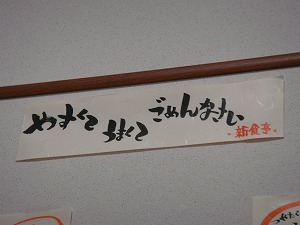 やすくて うまくて ごめんなさい
新食亭